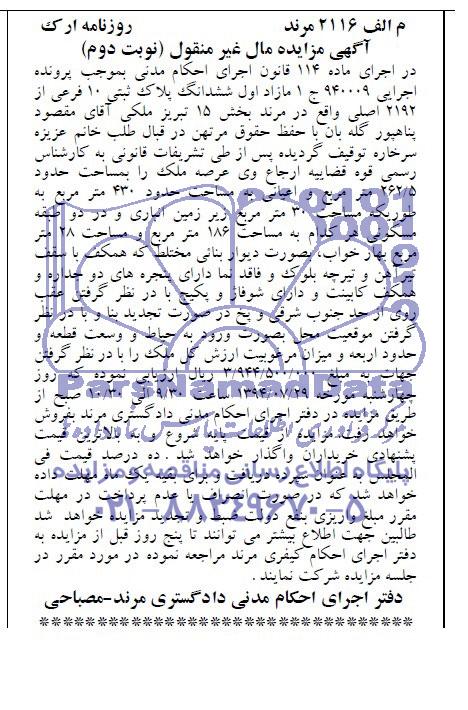 م الف ۲۱۱۶ مرند روزنامه ارک
آگهی مزایده مال غیر منقول (نوبت دوم)
در اجرای ماده ۱۱۴ قانون اجرای احکام مدنی بموجب پرونده
اجرایی ۹۴۰۰۰۹ ج ۱ مازاد اول ششدانگ پلاک ثبتی ۱۰ فرعی از
۲۱۹۲ اصلی واقع در مرند بخش ۱۵ تبریز ملکی آقای مقصود
پناهپور گله بان با حفظ حقوق مرتهن در قبال طلب خانم عزیزه
سرخاره توقیف گردیده پس از طی تشریفات قانونی به کارشناس
رسمی قوه قضاییه ارجاع وی عرصه ملک را بمساحت حدود
۲۶۲/۵ متر مربع و اعیانی به مساحت حدود ۴۳۰ متر مربع به
طوریکه مساحت ۳۰ متر مربع زیر زمین انباری و در دو طبقه
مسکونی هر کدام به مساحت ۱۸۶ متر مربع و مساحت ۲۸ متر
مربع بهار خواب، بصورت دیوار بنائی مختلط که همکف با سقف
تیرآهن و تیرچه بلوک و فاقد نما دارای پنجره های دو جداره و
همکف کابینت و داری شوفاژ و پکیج با در نظر گرفتن عقب
روی از حد جنوب شرقی و پخ در صورت تجدید بنا و با در نظر
گرفتن موقعیت محل بصورت ورود به حیاط و وسعت قطعه و
حدود اربعه و میزان مرغوبیت ارزش کل ملک را با در نظر گرفتن
جهات به مبلغ ریال ارزیابی نموده که روز
چهارشنبه مورخه ۱۳۹۴/۰۷/۲۹ ساعت ۹/۳۰ الی ۱۰/۳۰ صبح از
طریق مزایده در دفتر اجرای احکام مدنی دادگستری مرند بفروش
خواهد رفت مزایده از قیمت پایه شروع و به بالاترین قیمت
پیشنهادی خریداران واگذار خواهد شد . ده درصد قیمت فی
المجلس به عنوان سپرده دریافت و برای بقیه یک ماه مهلت داده
خواهد شد که در صورت انصراف یا عدم پرداخت در مهلت
مقرر مبلغ واریزی بنفع دولت ضبط و تجدید مزایده خواهد شد
طالبین جهت اطلاع بیشتر می توانند تا پنج روز قبل از مزایده به
دفتر اجرای احکام کیفری مرند مراجعه نموده در مورد مقرر در
جلسه مزایده شرکت نمایند .
دفتر اجرای احکام مدنی دادگستری مرند-مصباحی
ParsNamadData
پایگاه اطلاع رسانی مناقصه و مزایده
۰۲۱-۸۸۳۴۹۶۷۰-۵